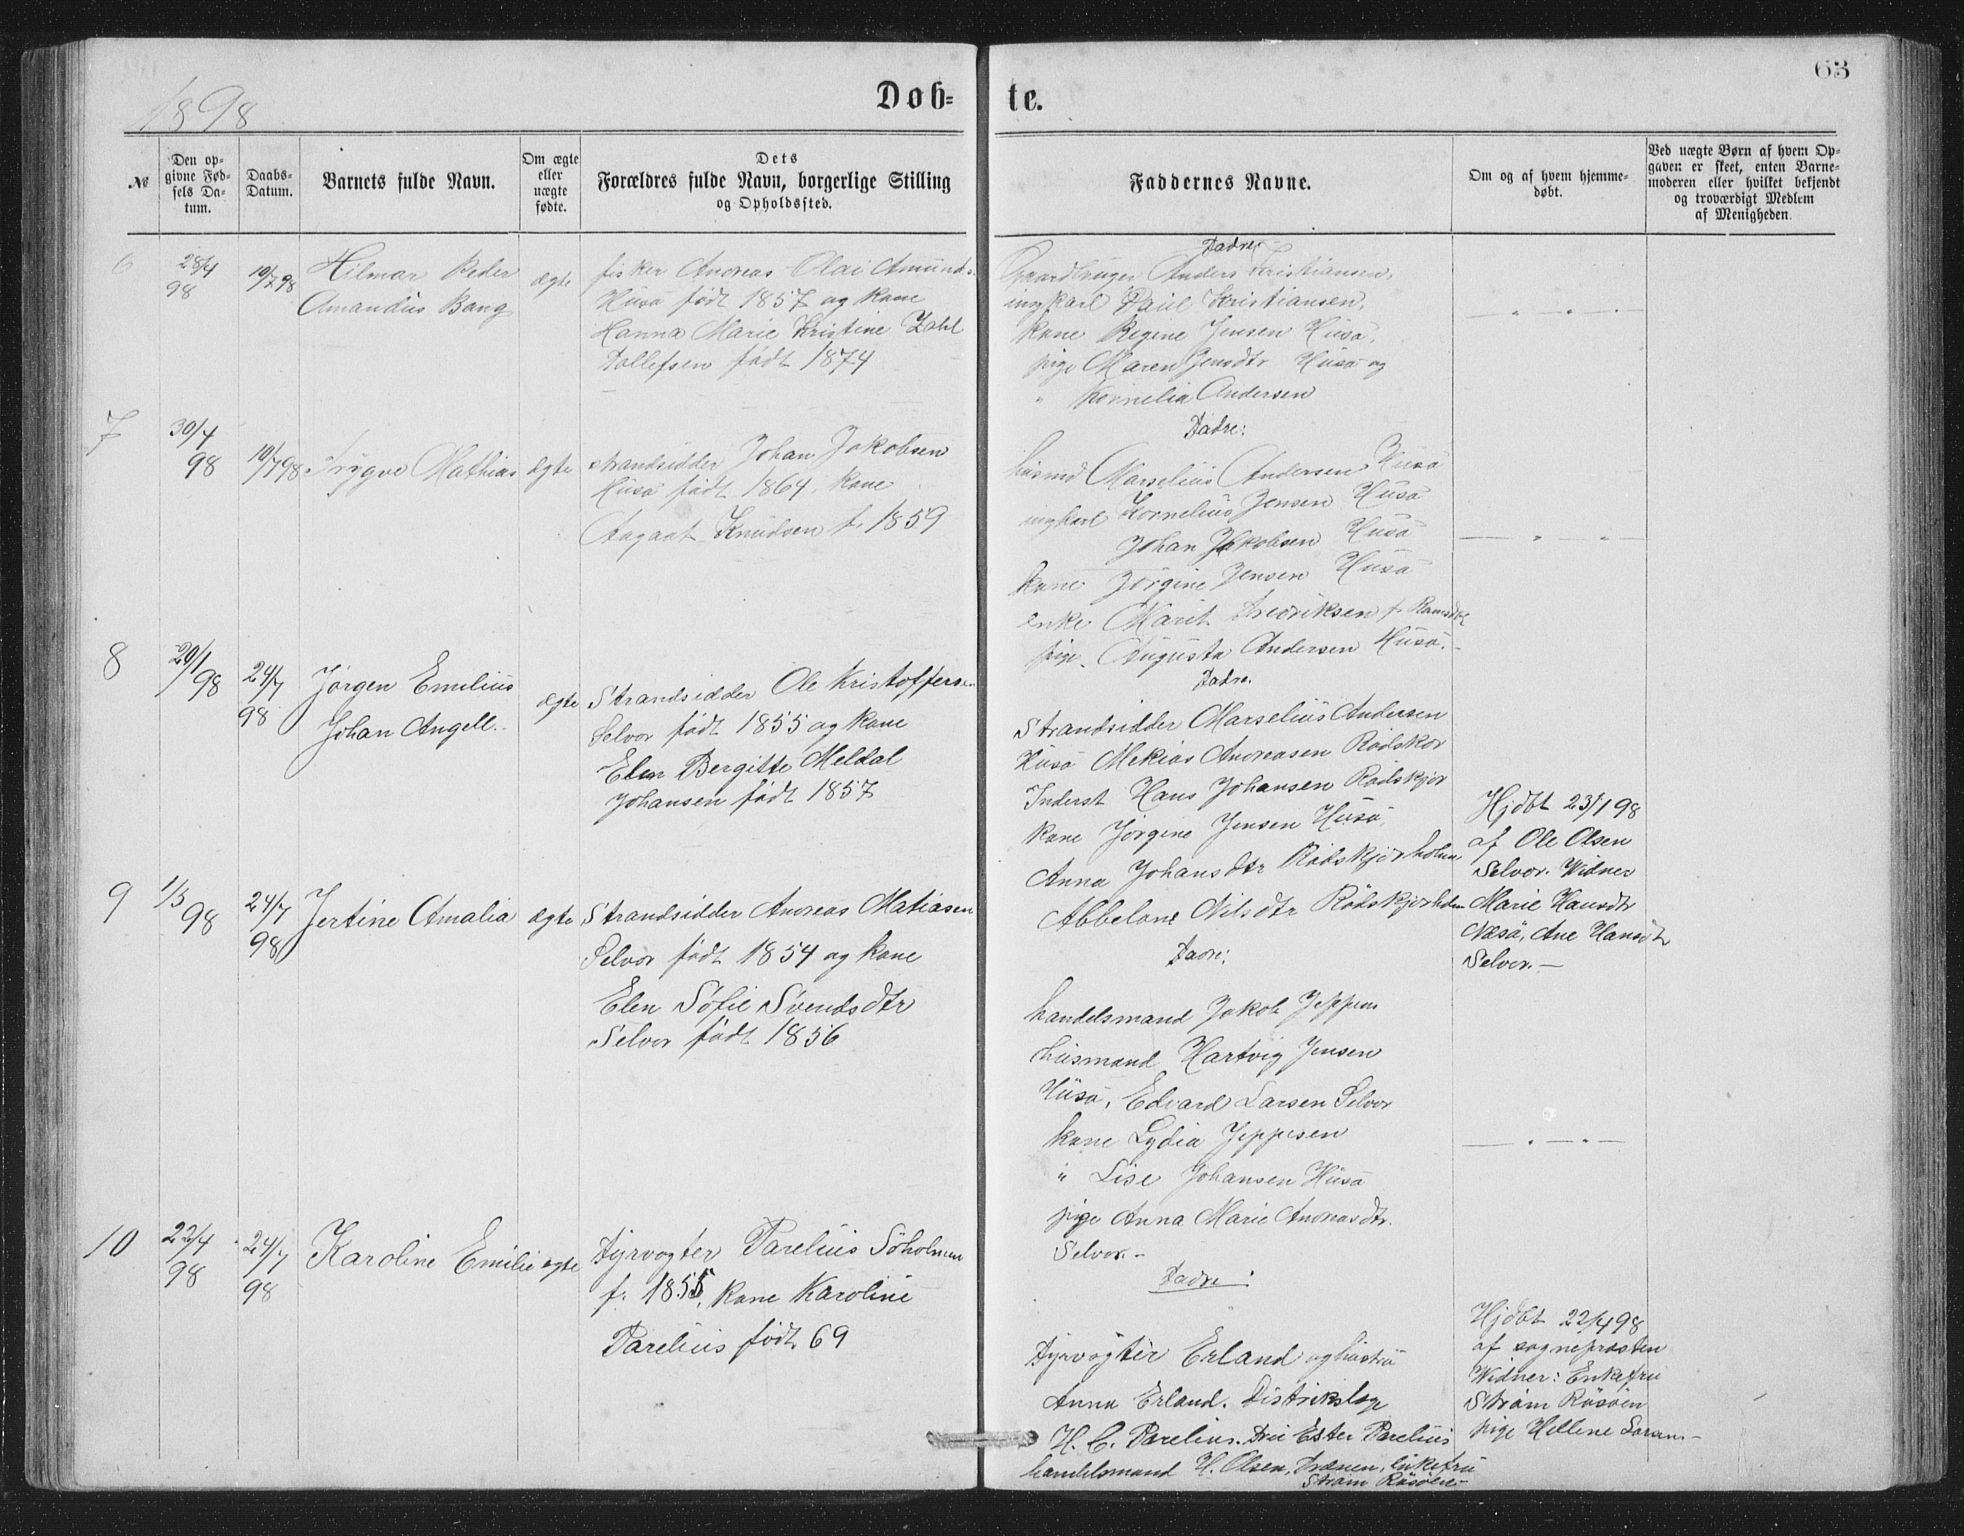 63
1898
Døb-
te.
№
Den op-
givne Fød-
sels Da-
tum.
Daabs-
Datum.
Barnets fulde Navn.
Om ægte
eller
uægte
fødte.
Dets
Forældres fulde Navn, borgerlige Stilling
og Opholdssted.
Faddernes Navne.
Om og af hvem hjemme-
døbt.
Ved uægte Børn af hvem Op-
gaven er skeet, enten Barne-
moderen eller hvilket bekjendt
og troværdigt Medlem
af Menigheden.
6
28/4
98
10/7 98
Hilmar Peder
Amandus Bang
ægte
fisker Andreas Olai Amunds.
Husø født 1857 og kone
Hanna Marie Kristine Zahl
Tollefsen født 1874
Fadre:
Gaardbruger Anders Kristiansen,
ungkarl Paul Kristiansen,
kone Regine Jensen Husø,
pige Maren Jensdtr Husø og
" Kornelia Andersen
7
30/4
98
10/7 98
Trygve Mathias
ægte
strandsidder Johan Jakobsen
Husø født 1864, kone
Aagaat Knudsen f. 1859
Fadre:
husmd Marselius Andersen Husø
ungkarl Kornelius Jensen Husø
Johan Jakobsen Husø
kone Jørgine Jensen Husø
enke Marit Fredriksen f.
pige Augusta Andersen Husø.
8
20/1
98
24/7
98
Jørgen Emilius
Johan Angell.
ægte
Strandsidder Ole Kristoffersen
Selvor født 1855 og kone
Elen Bergitte Meldal
Johansen født 1857
Fadre.
Strandsidder Marselius Andersen
Husø Mekias Andreasen Rødskor
Inderst Hans Johansen Rødskjør
kone Jørgine Jensen Husø,
Anna Johansdtr Rødskjørholm
Abbelone Nilsdtr Rødskjørholm
Hjdbt 23/1 98
af Ole Olsen
Selvor. Widner
Marie Hansdtr
Næsø, Ane Hansdtr
Selvor. —
9
1/5
98
24/7
98
Jertine Amalia
ægte
Strandsidder Andreas Matiasen
Selvor født 1854 og kone
Elen Sofie Svendsdtr
Selvor født 1856
Fadre:
handelsmand Jakob Jeppesen
husmand Hartvig Jensen
Husø, Edvard Larsen Selvor
kone Lydia Jeppesen
" Lise Johansen Husø
pige Anna Marie Andreasdtr.
Selvor.
10
22/4
98
24/7
98
Karoline Emilie
ægte
Fyrvogter Parelius Søholmen
f. 1855, kone Karoline
Parelius født 69
Fadre:
Fyrvogter Erland og hustru
Anna Erland. Distriktslæge
H. C. Parelius. Fru Ester Parelius
handelsmand H. Olsen, Trænen, enkefru
Strøm Røsøen
Hjdbt 22/4 98
af sogneprosten
Widner: Enkefru
Strøm Røsøen
pige Hellene Larsen